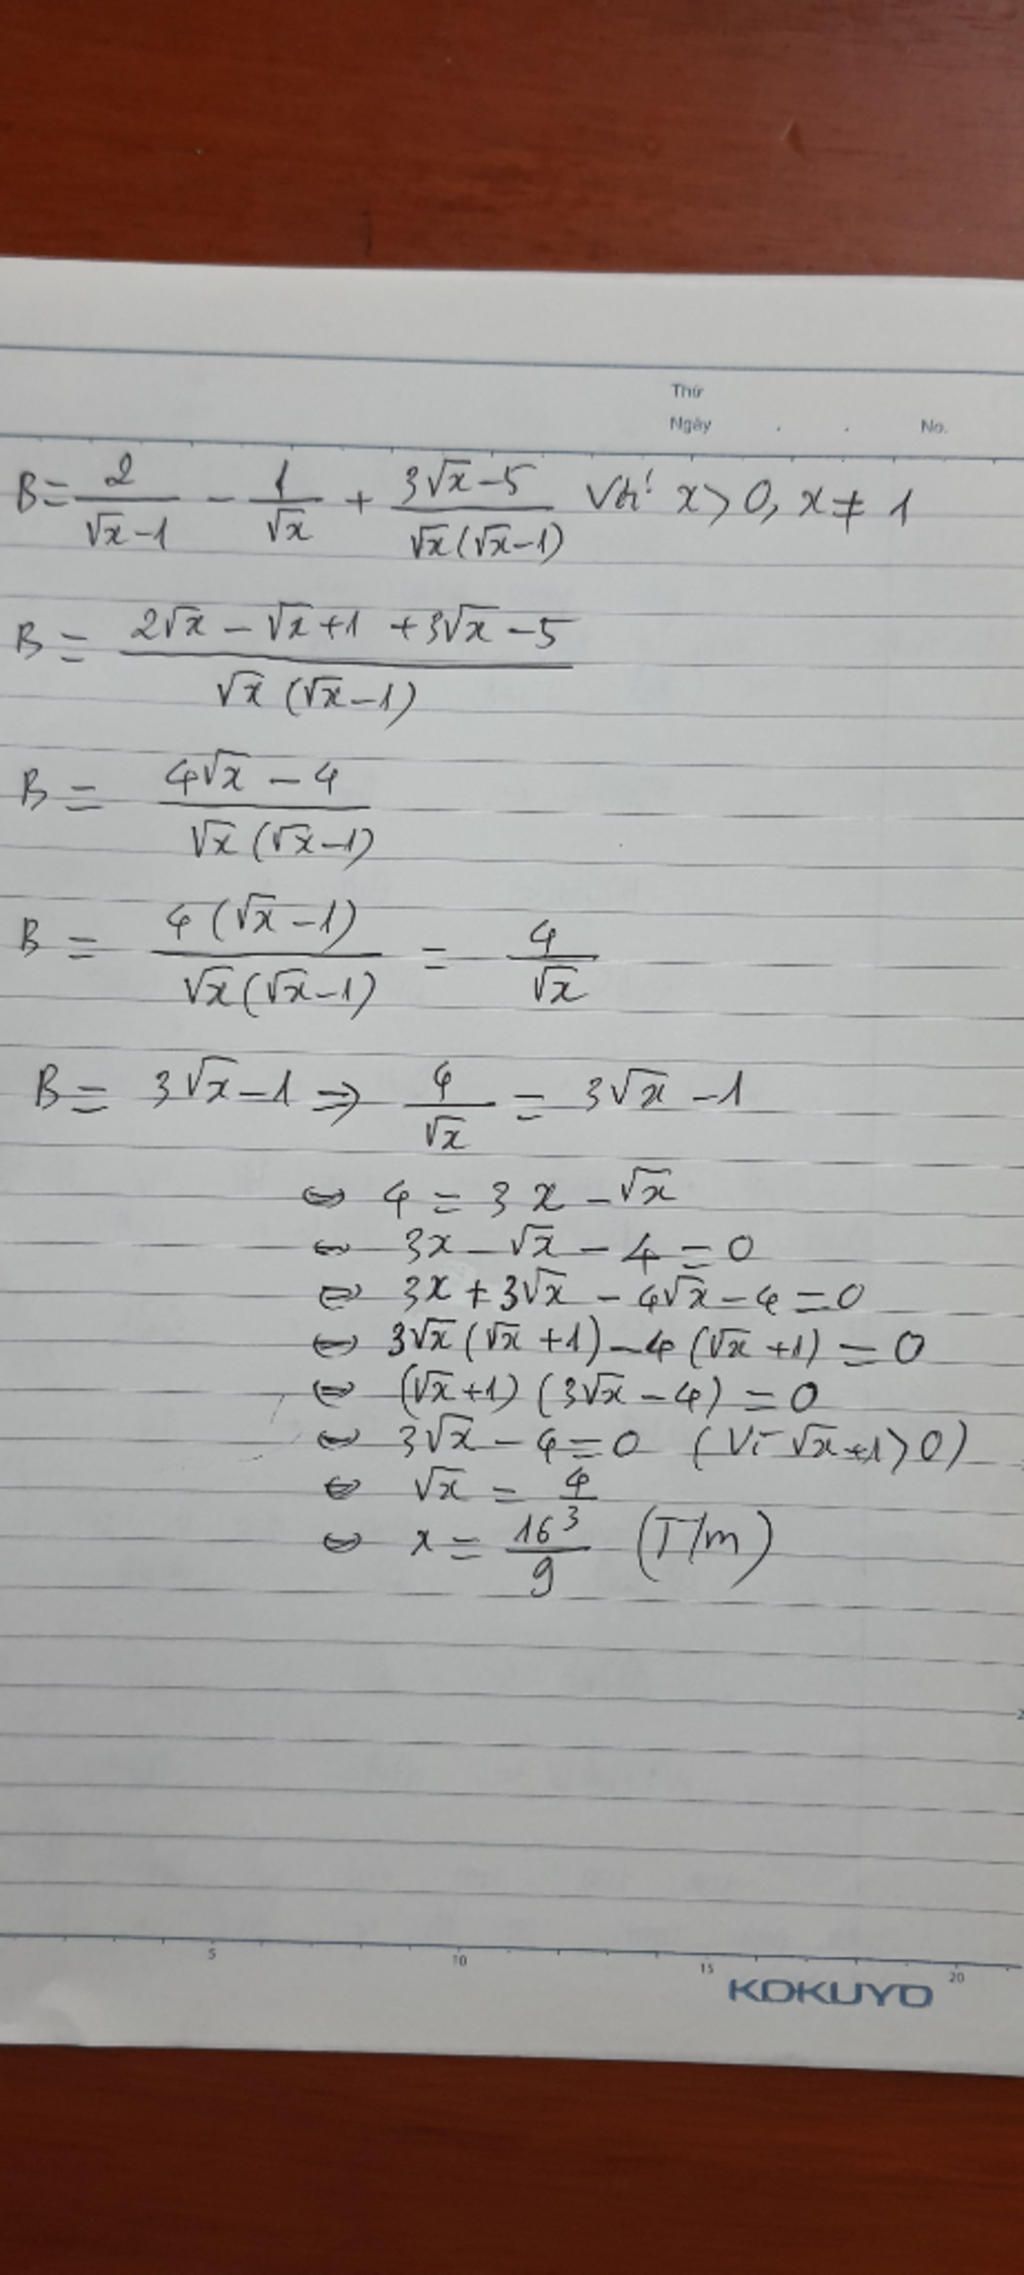 Thứ
Ngày . . No.
B = 2/(√x-1) - 1/√x + (3√x-5)/(√x(√x-1)) Với x > 0, x ≠ 1
B = (2√x - √x+1 +3√x -5)/(√x (√x-1))
B = (4√x - 4)/(√x (√x-1))
B = (4 (√x -1))/(√x(√x-1)) = 4/√x
B = 3√x-1 ⇒ 4/√x = 3√x -1
⇔ 4 = 3x - √x
⇔ 3x - √x - 4 = 0
⇔ 3x + 3√x - 4√x - 4 = 0
⇔ 3√x (√x +1) - 4 (√x +1) = 0
⇔ (√x+1) (3√x - 4) = 0
⇔ 3√x - 4 = 0 (Vì √x+1 > 0)
⇔ √x = 4/3
⇔ x = 16/9 (T/m)
5 10 15 20
KOKUYO